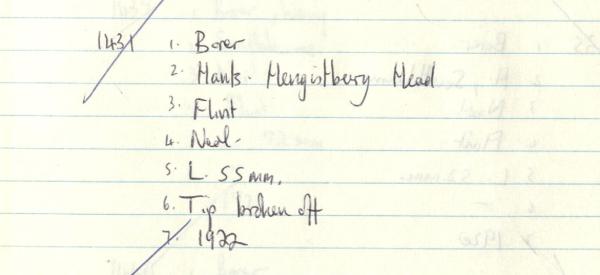 1431 1. Borer
2. Hants. Hengistbury Head
3. Flint
4. Neol.
5. L. 55mm.
6. Tip broken off
7. 1922